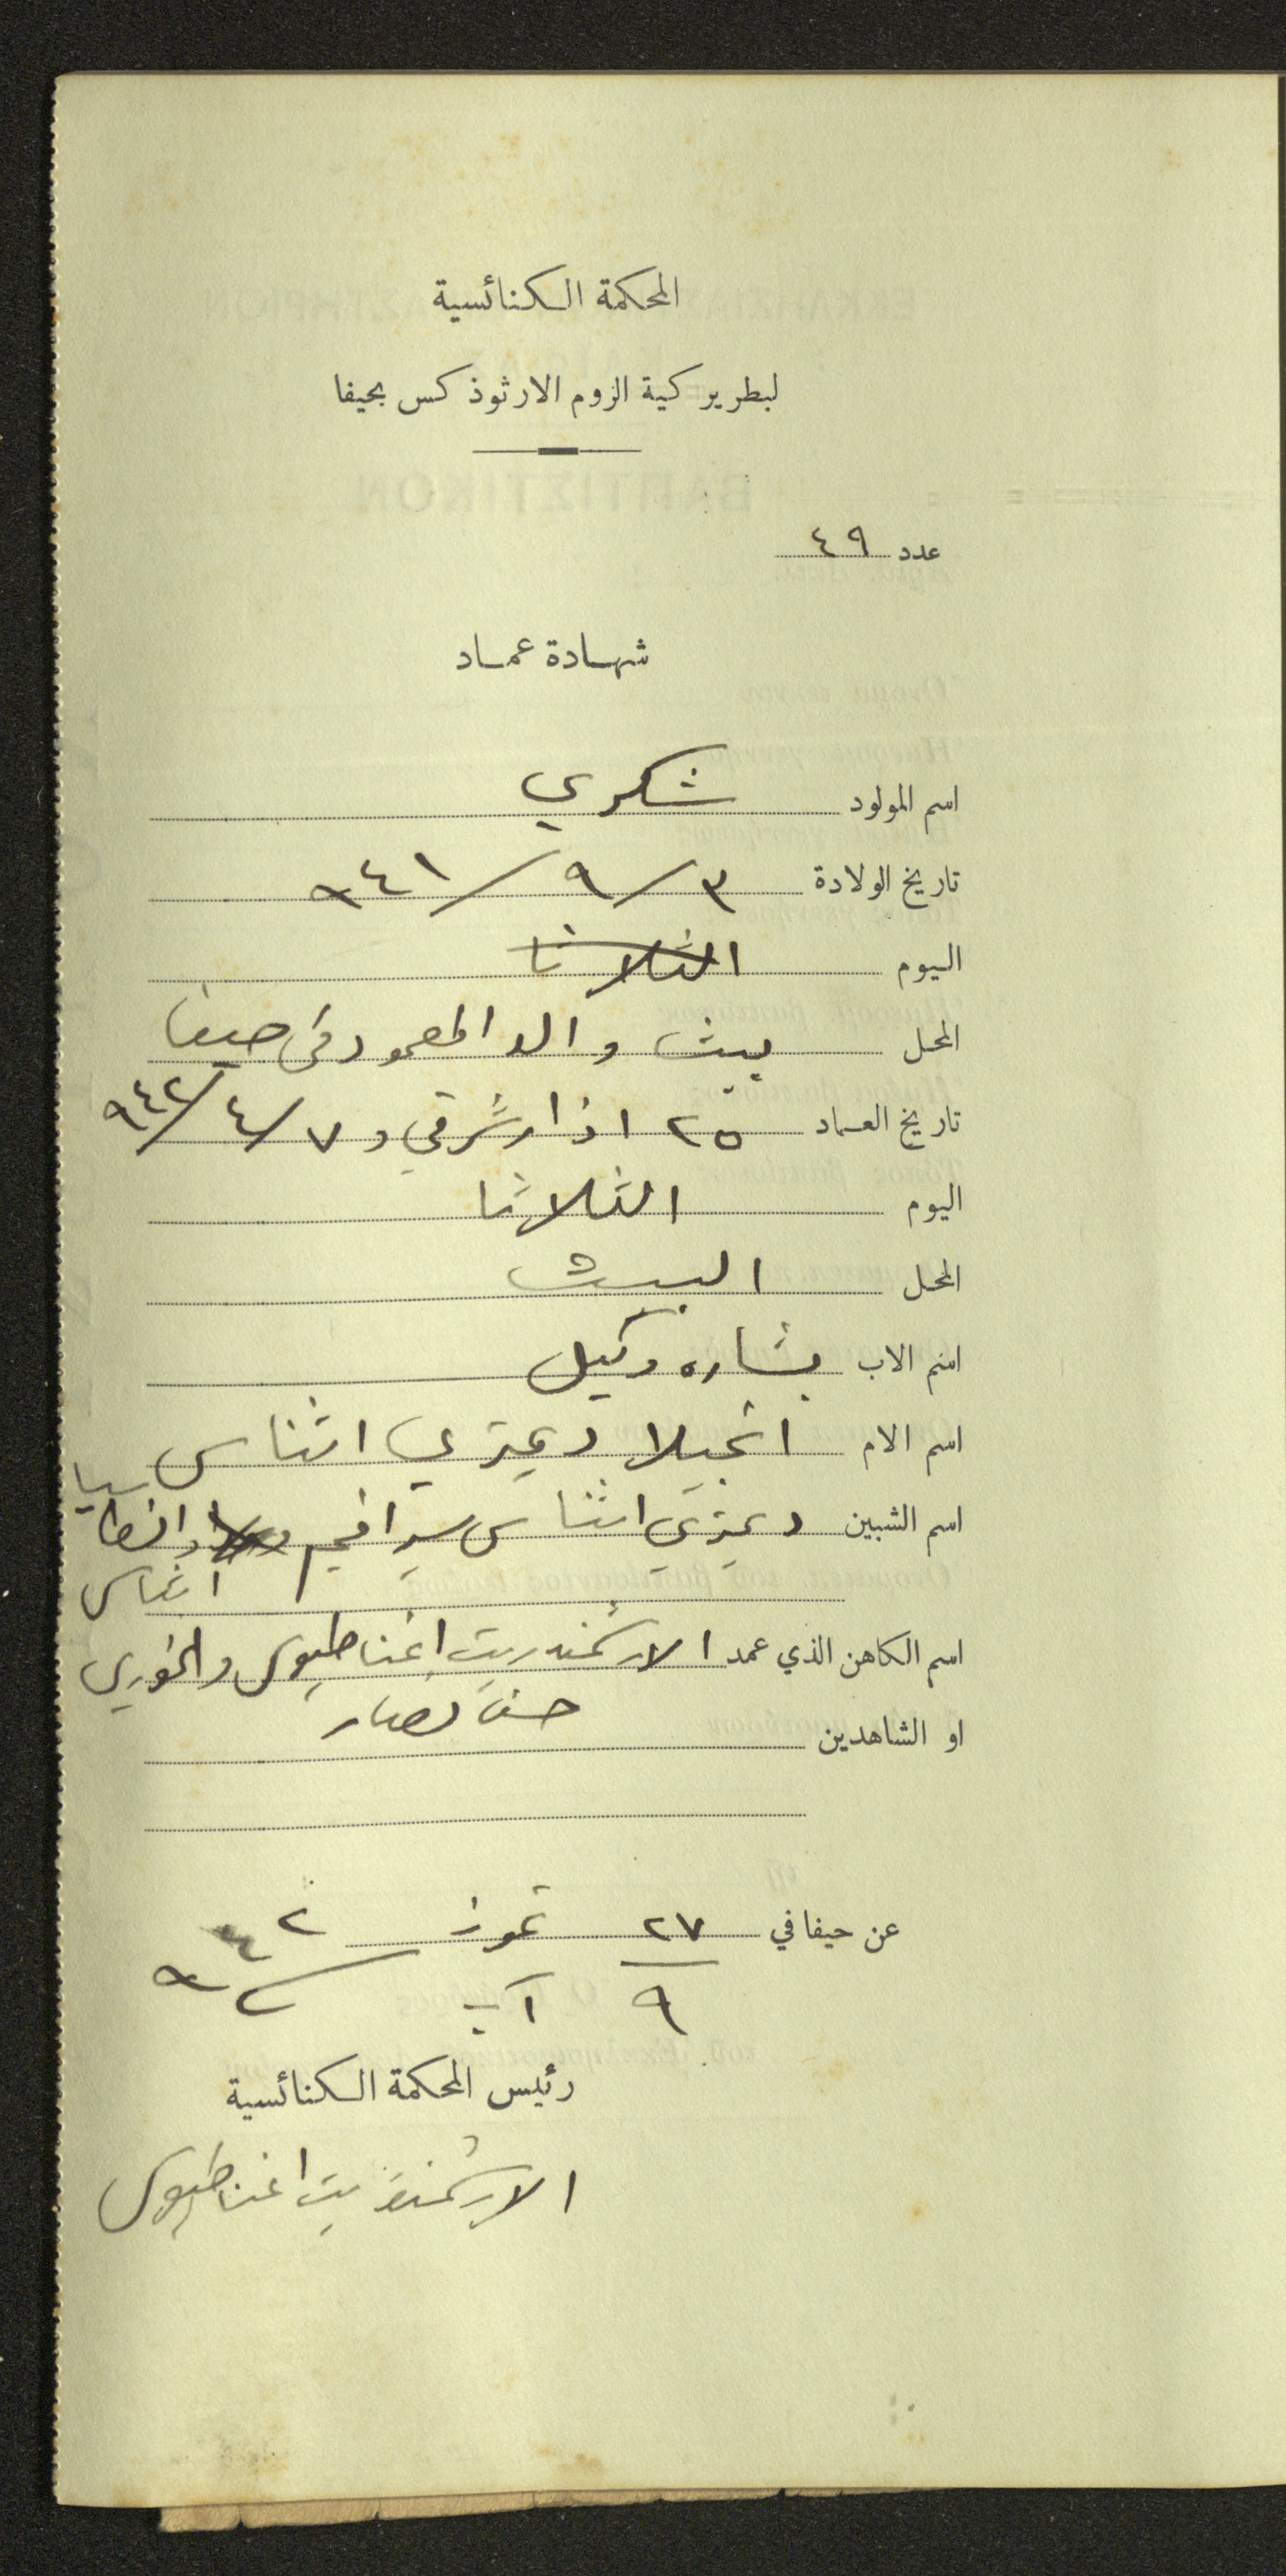 المحكمة الكنائسية
لبطريركية الروم الارثوذكس بحيفا
عدد ٤٩
شهادة عماد
اسم المولود شكري
تاريخ الولادة ٣/٩/٩٤١
اليوم الثلاثا
المحل بيت والد المعمود في حيفا
تاريخ العماد ٢٥ اذار شرقي و ٧/٤/٩٤٢
اليوم الثلاثا
المحل البيت
اسم الاب بشاره وكيل
اسم الام انجيلا ديمتري اثناس
اسم الشبين ديمتري اثناس سيرافيم وانسطاسيا
اثناس
اسم الكاهن الذي عمد الارشمندريت اغناطيوس والخوري
حنا نصار
او الشاهدين
عن حيفا في ٢٧ تموز ٩٤٢
٩ آب
رئيس المحكمة الكنائسية
الارشمندريت اغناطيوس